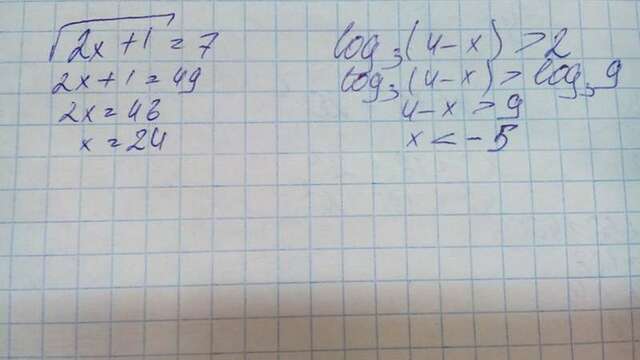 √(2x+1) = 7
2x+1 = 49
2x = 48
x = 24
log₃(4-x) > 2
log₃(4-x) > log₃9
4-x > 9
x < -5